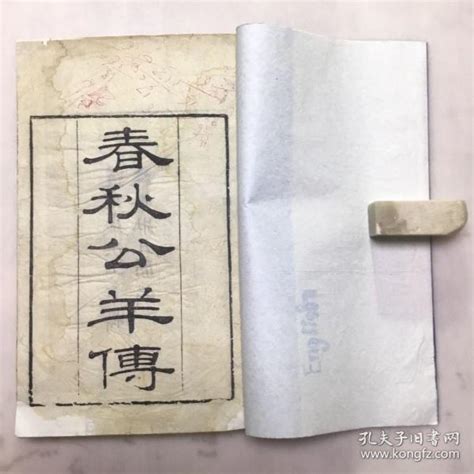 春秋公羊傳
English
孔夫子旧书网
www.kongfz.com